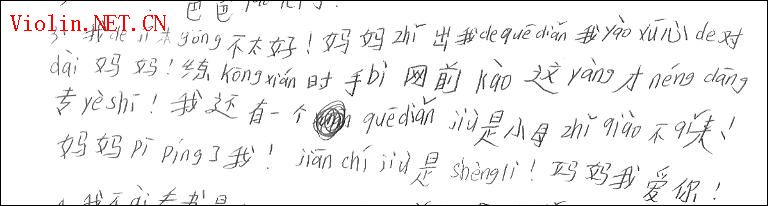 爸爸
Violin.NET.CN
3、我de jī本gōng不太好！妈妈zhǐ出我de quē diǎn我yào xū心de对
dài妈妈！练kōng xián时手bì网前kào这yàng才néng dāng
专yè shī！我还有一个quē diǎn jiù是小母zhǐ qiào不qǐ来！
妈妈pī píng了我！jiān chí jiù是shèng lì！妈妈我爱你！
我不ài